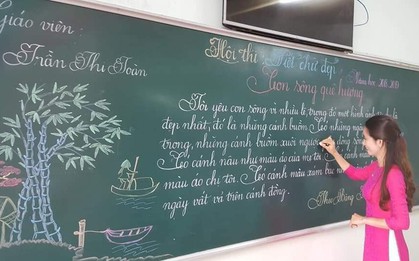 Giáo viên:
Trần Thu Toàn
Hội thi: Viết chữ đẹp
Năm học:
Con sông quê hương
Tôi yêu con sông vì nhiều lẽ, trong đó một hình
đẹp nhất, đó là những cánh buồm. Có những ngày
trong, những cánh buồm xuôi ngược dòng sông
Có cánh nâu như màu áo của mẹ tôi. Có cánh
màu áo chị tôi. Có cánh màu xám bạc
ngày vất vả trên cánh đồng.